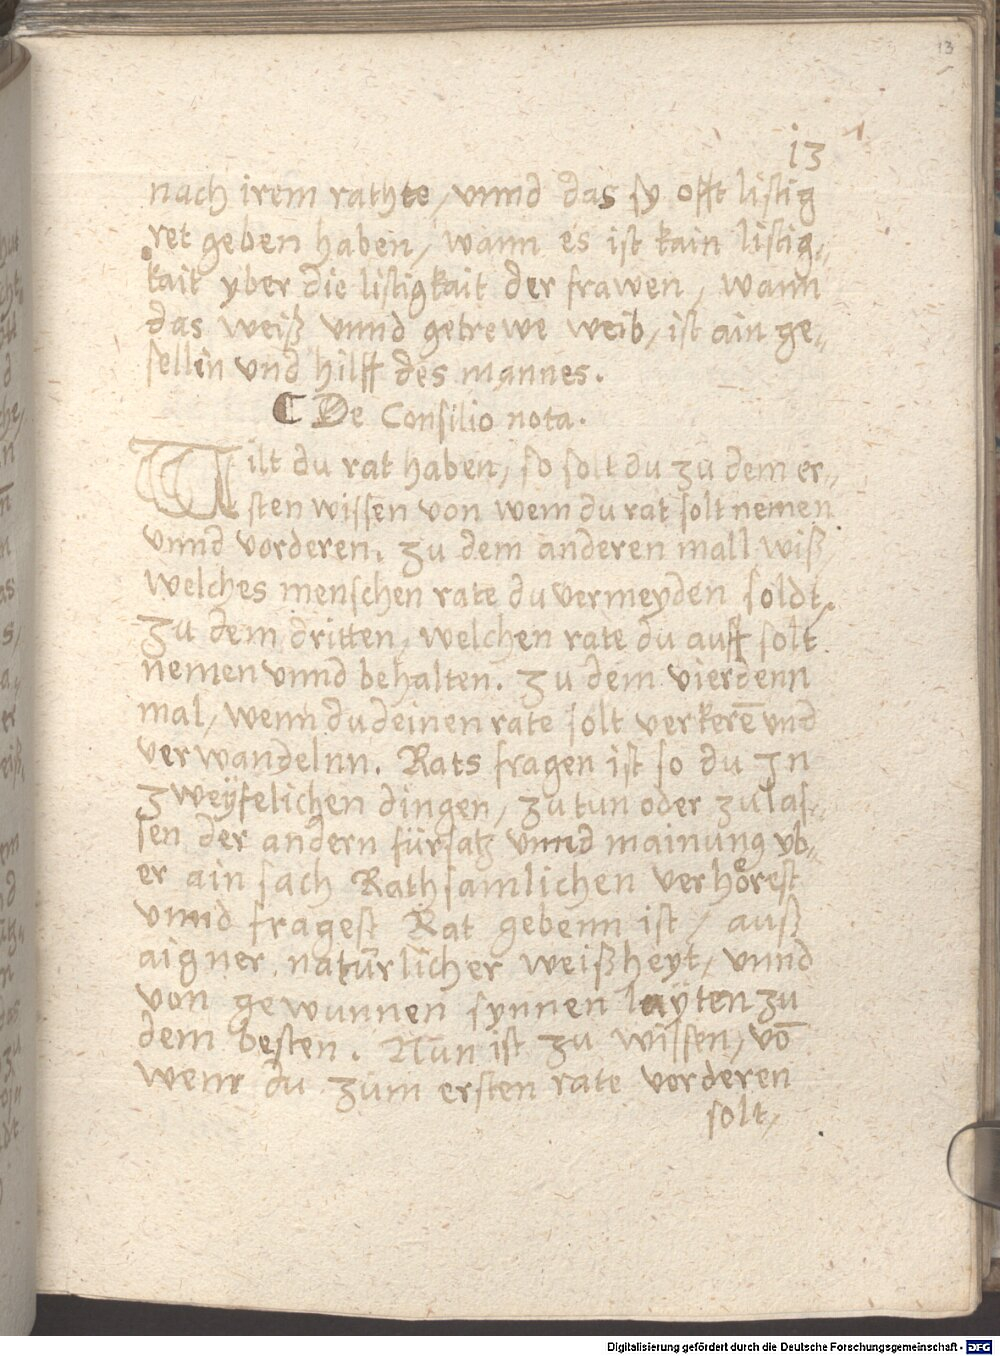 13
13
nach irem rathte, vnnd das sy offt listig
ret geben haben, wann es ist kain listig⸗
kait yber die listigkait der frawen, wann
das weiß vnnd getrewe weib, ist ain ge⸗
sellin vnd hilff des mannes.
De Consilio nota.
Wilt du rat haben, so solt du zu dem er⸗
sten wissen von wem du rat solt nemen
vnnd vorderen. zu dem anderen mall wiß
welches menschen rate du vermeyden soldt,
zu dem dritten, welchen rate du auff solt
nemen vnnd behalten. zu dem vierdenn
mal, wenn du deinen rate solt verkerē vnd
verwandelnn. Rats fragen ist so du Jn
zweÿfelichen dingen, zu tun oder zu las⸗
sen der andern fürsatz vnnd mainung yb⸗
er ain sach Rathsamlichen verhörest
vnnd fragest Rat gebenn ist, auß
aigner natürlicher weißheyt, vnnd
von gewunnen synnen layten zu
dem besten. Nun ist zu wissen, vō
wem du zum ersten rate vorderen
solt,
Digitalisierung gefördert durch die Deutsche Forschungsgemeinschaft - DFG